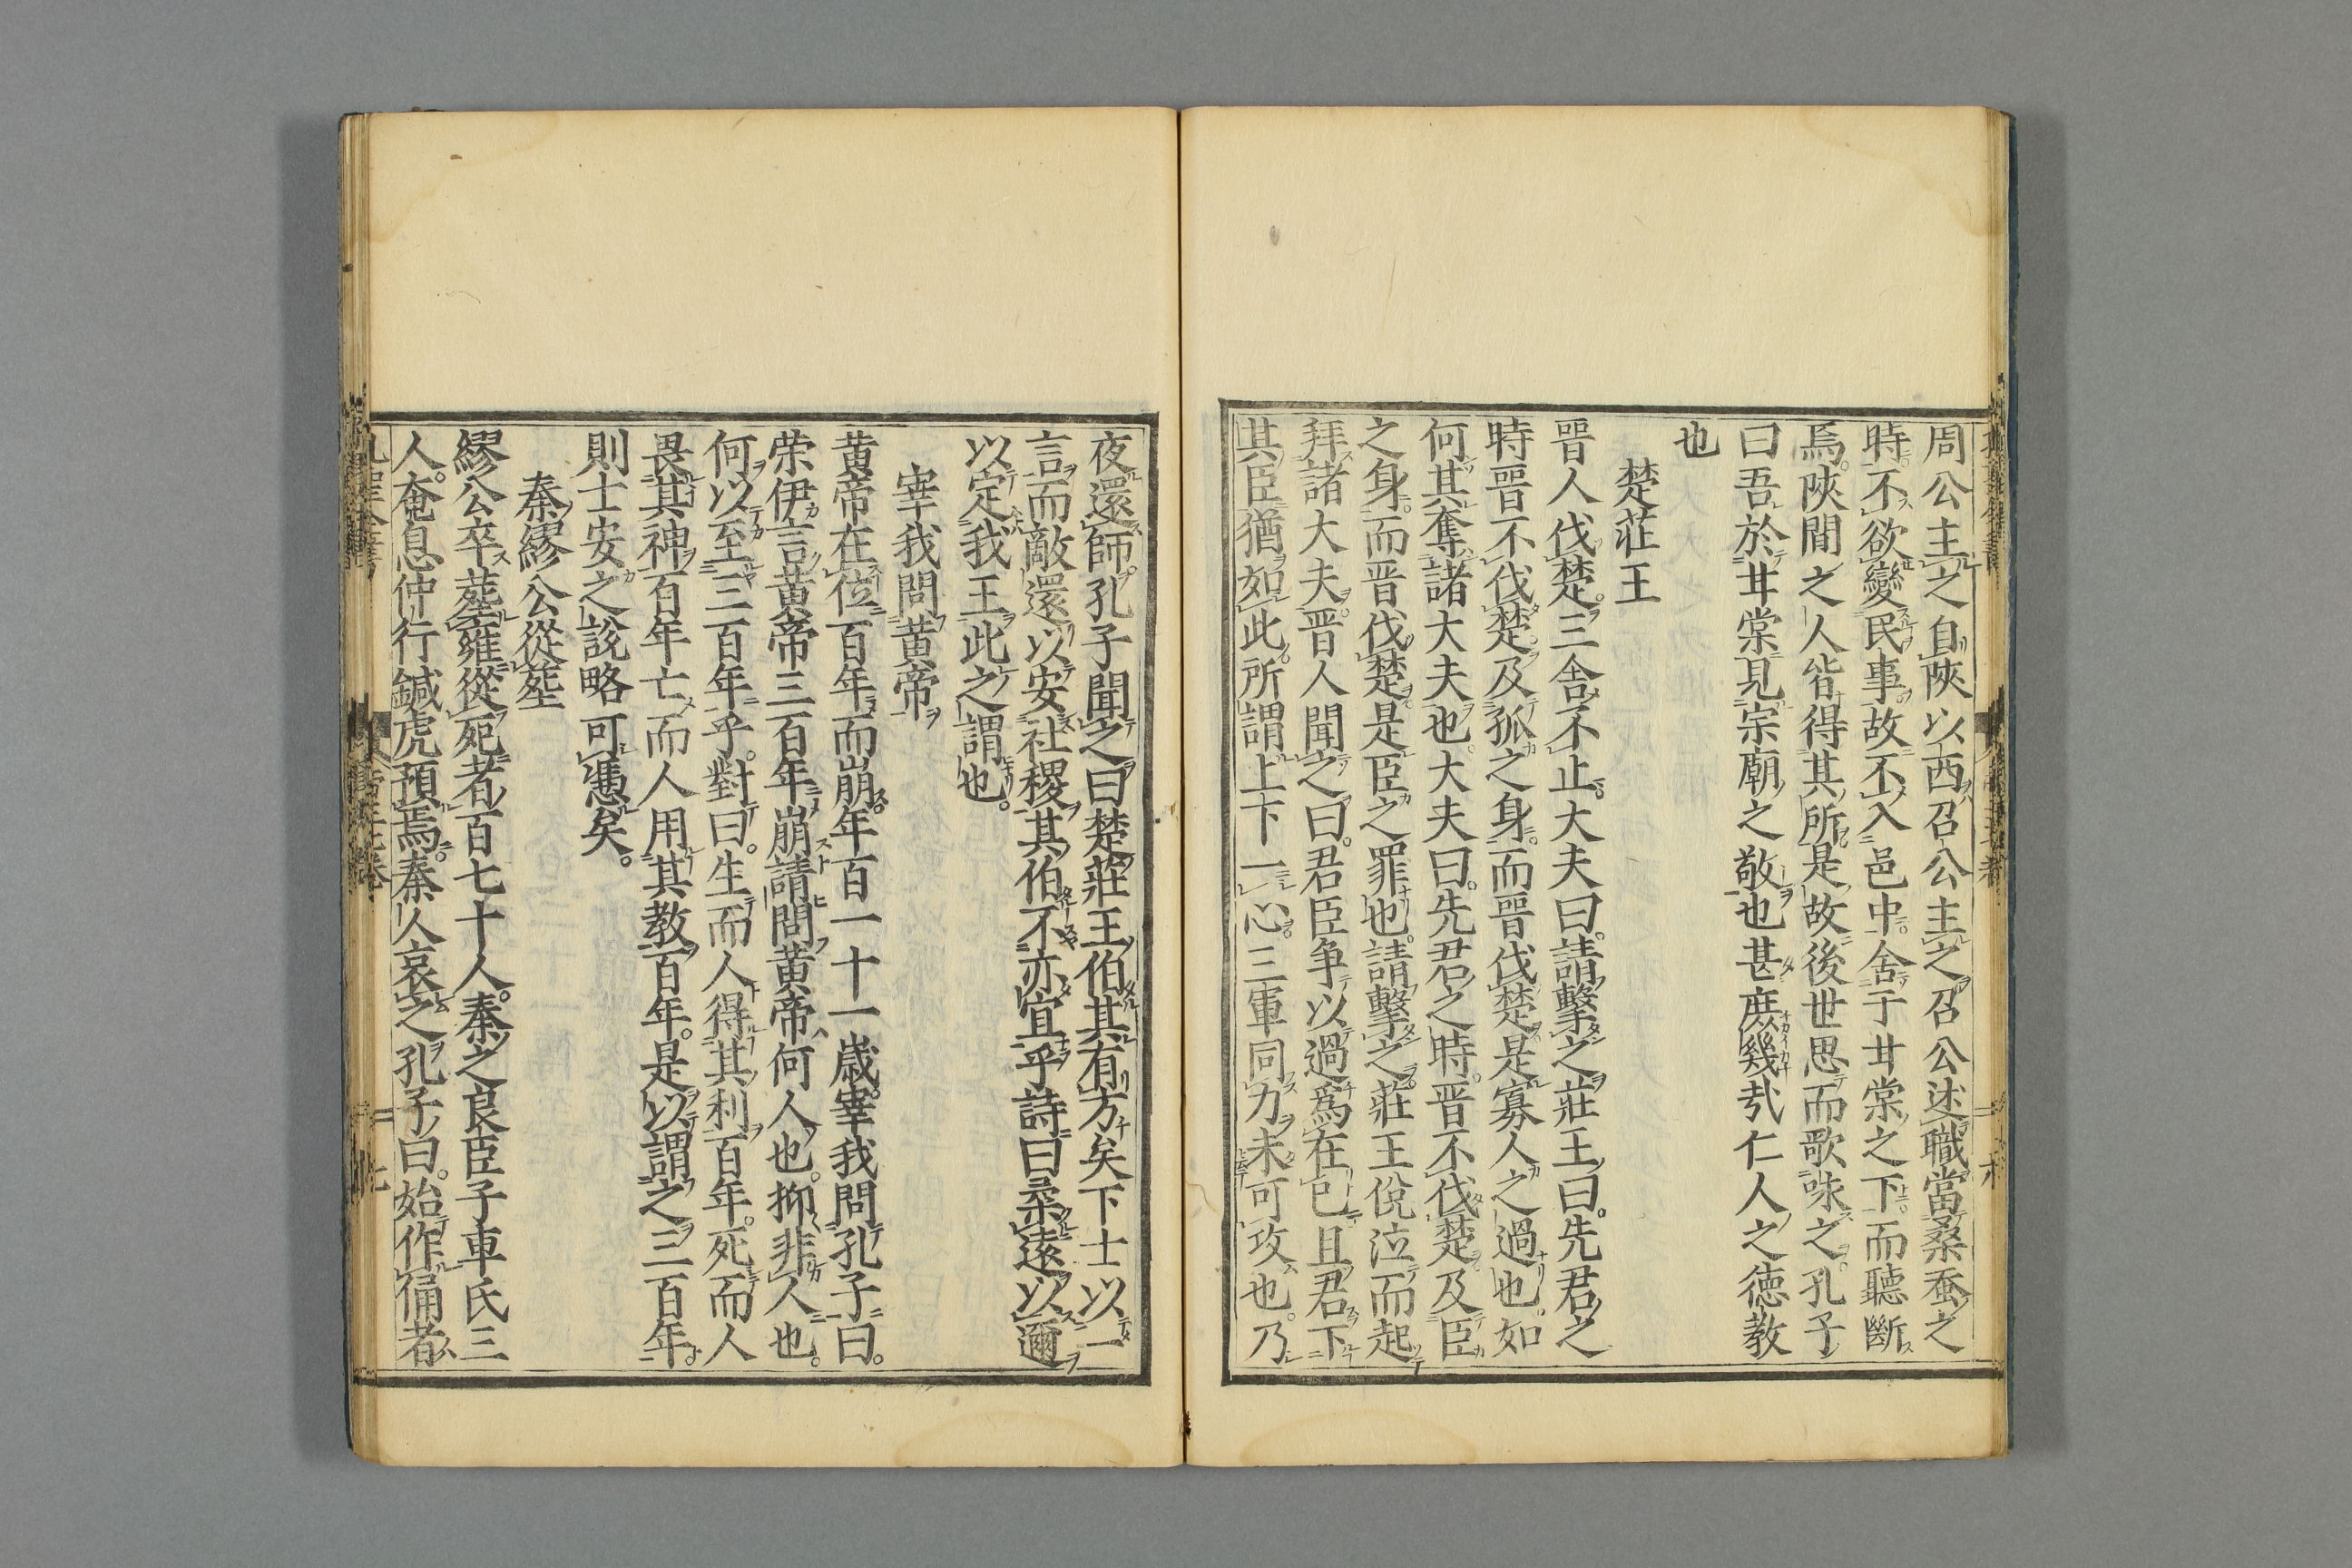 周公主之自陝以西召公主之召公述職當桑蚕之
時不欲變民事故不入邑中舍于甘棠之下而聽斷
焉陝間之人皆得其所是故後世思而歌咏之孔子
曰吾於甘棠見宗廟之敬也甚庶幾哉仁人之德教
也
楚莊王
晉人伐楚三舍不止大夫曰請擊之莊王曰先君之
時晉不伐楚及孤之身而晉伐楚是寡人之過也如
何其奪諸大夫也大夫曰先君之時晋不伐楚及臣
之身而晋伐楚是臣之罪也請擊之莊王俛泣而起
拜諸大夫晋人聞之曰君臣争以過爲在己且君下
其臣猶如此所謂上下一心三軍同力未可攻也乃
夜還師孔子聞之曰楚莊王伯其有方矣下士以一
言而敵還以安社稷其伯不亦宜乎詩曰柔遠以邇
以定我王此之謂也
宰我問黄帝
黄帝在位百年而崩年百一十一歳宰我問孔子曰
荣伊言黄帝三百年崩請問黄帝何人也抑非人也
何以至三百年乎對曰生而人得其利百年死而人
畏其神百年亡而人用其教百年是以謂之三百年
則士安之說略可憑矣
秦繆公從葬
繆公卒葬雍從死者百七十人秦之良臣子車氏三
人奄息仲行鍼虎預焉秦人哀之孔子曰始作俑者